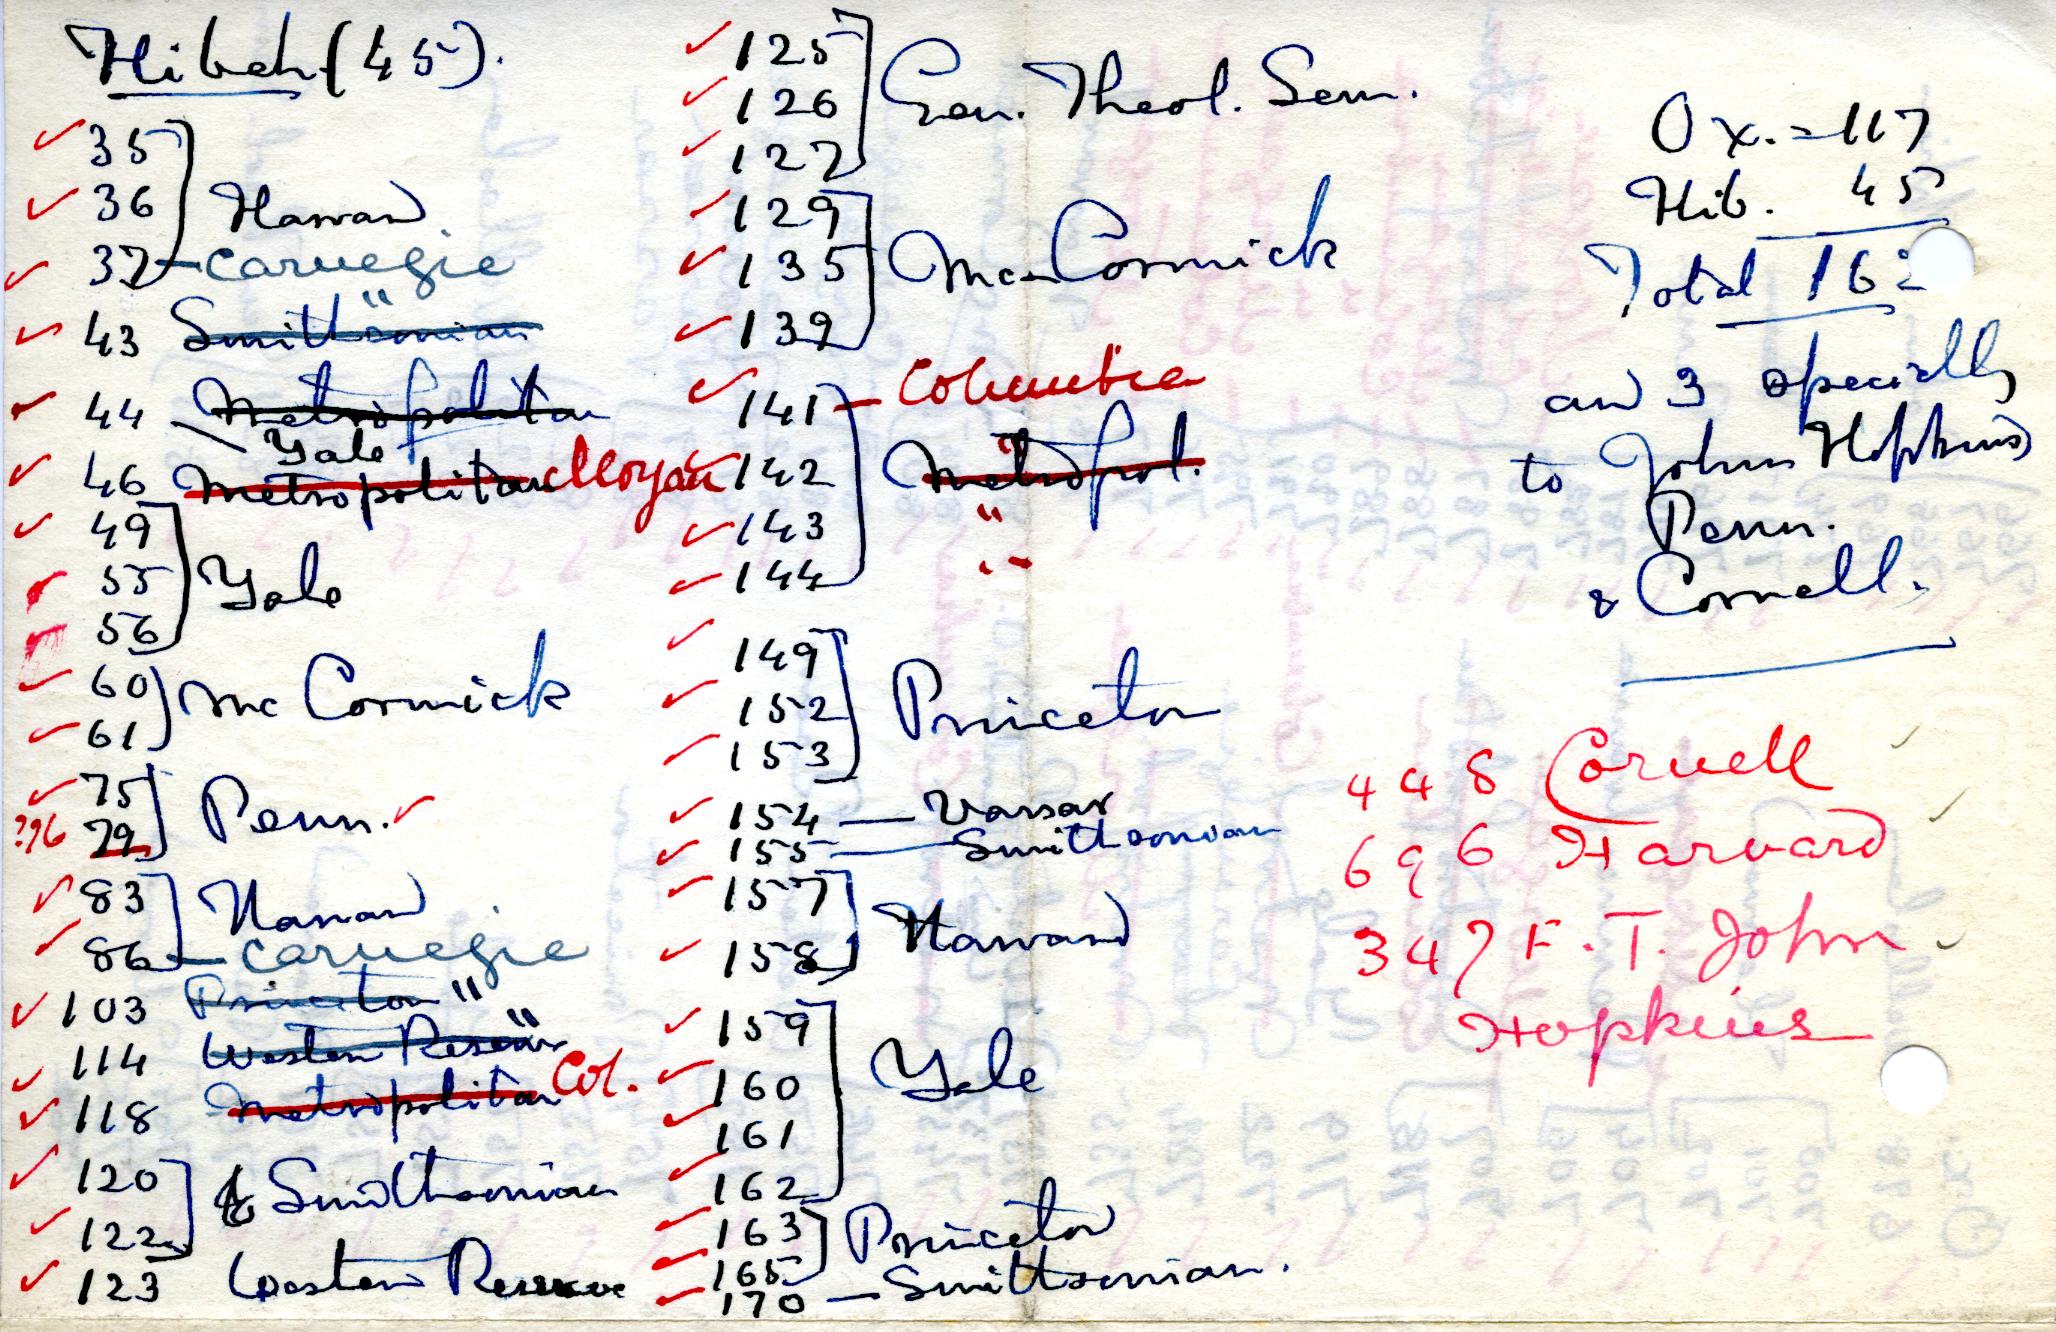 Hibeh (45).
35
36 Harvard
37 Carnegie
43 Smithsonian "
44 Metropolitan
Yale
46 Metropolitan Morgan
49
55 Yale
56
60 Mc Cormick
61
75 Penn.
?96 79
83 Harvard
86 Carnegie
103 Princeton "
114 Western Reserve "
118 Metropolitan Col.
120 Smithsonian
122
123 Western Reserve
125
126 Gen. Theol. Sem.
127
129
135 McCormick
139
141 Columbia
142 Metropol. "
143 "
144 "
149
152 Princeton
153
154 — Vassar
155 — Smithsonian
157
158 Harvard
159
160 Yale
161
162
163 Princeton
165
170 — Smithsonian.
Ox. = 117
Hib. 45
Total 162
and 3 specially
to Johns Hopkins
Penn.
& Cornell.
448 Cornell
696 Harvard
347 F. T. John
Hopkins